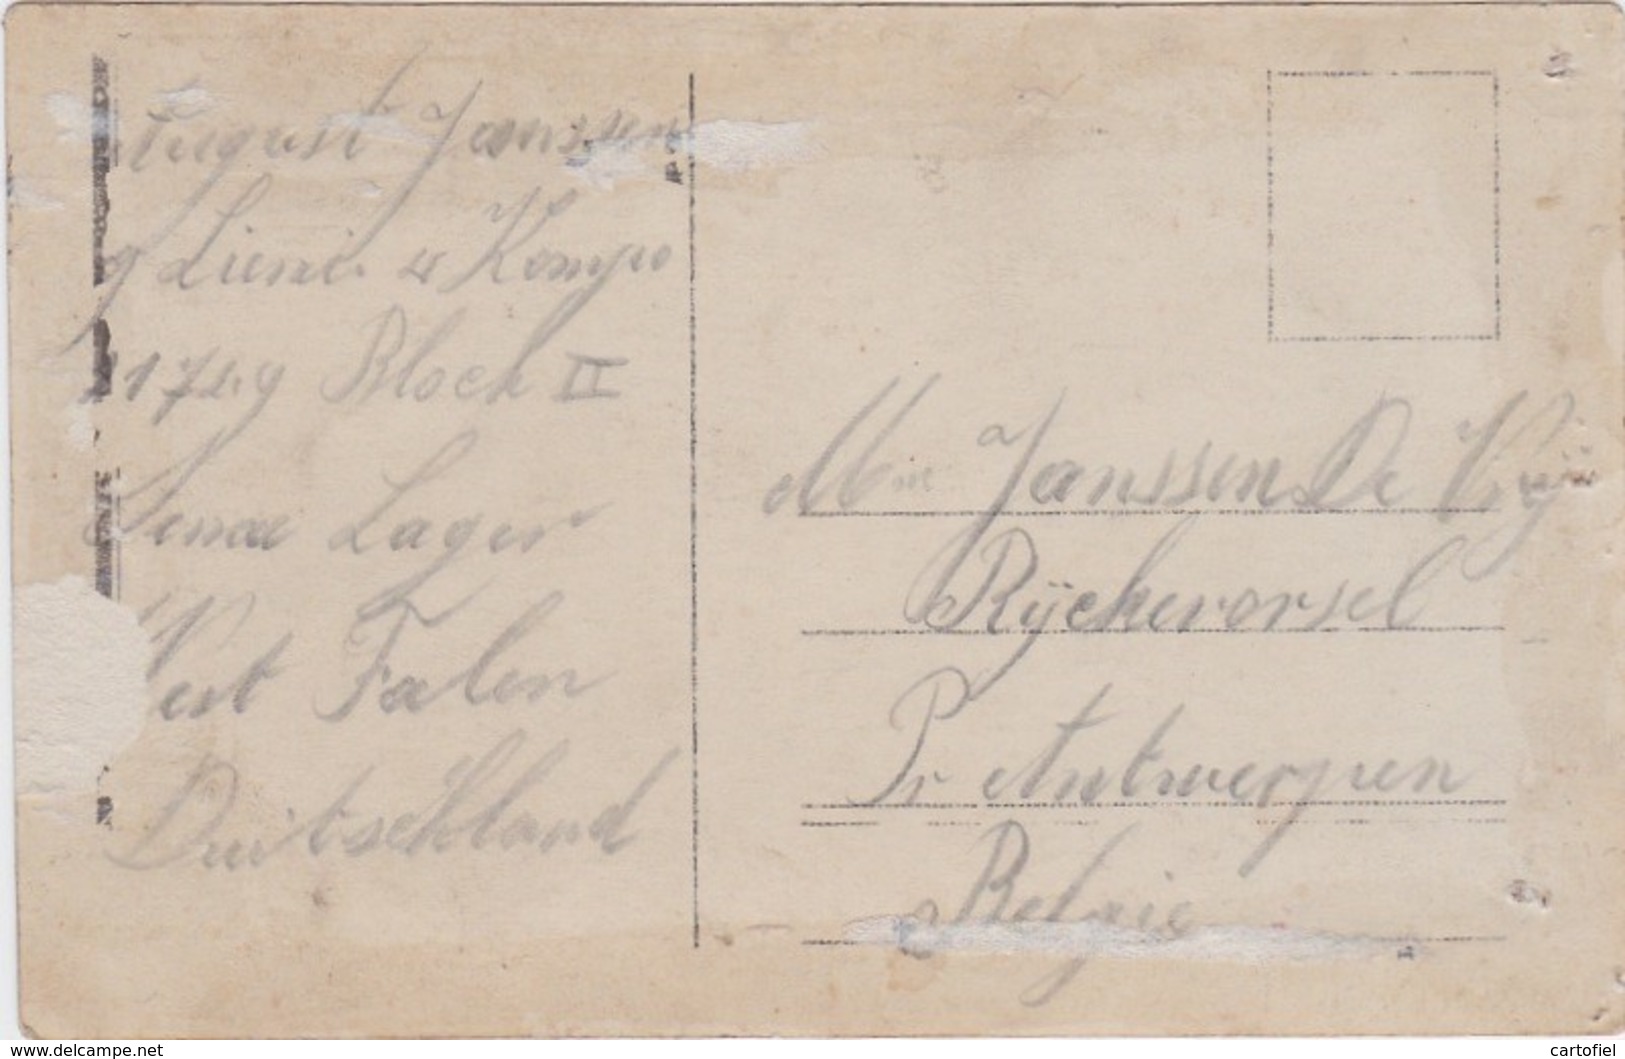 August Janssen
9 Linie 4 Komp
Block II
Lager
West Falen
Duitschland
Mme Janssen De Vrij
Rÿckevorsel
Pr Antwerpen
Belgie
www.delcampe.net
cartofiel